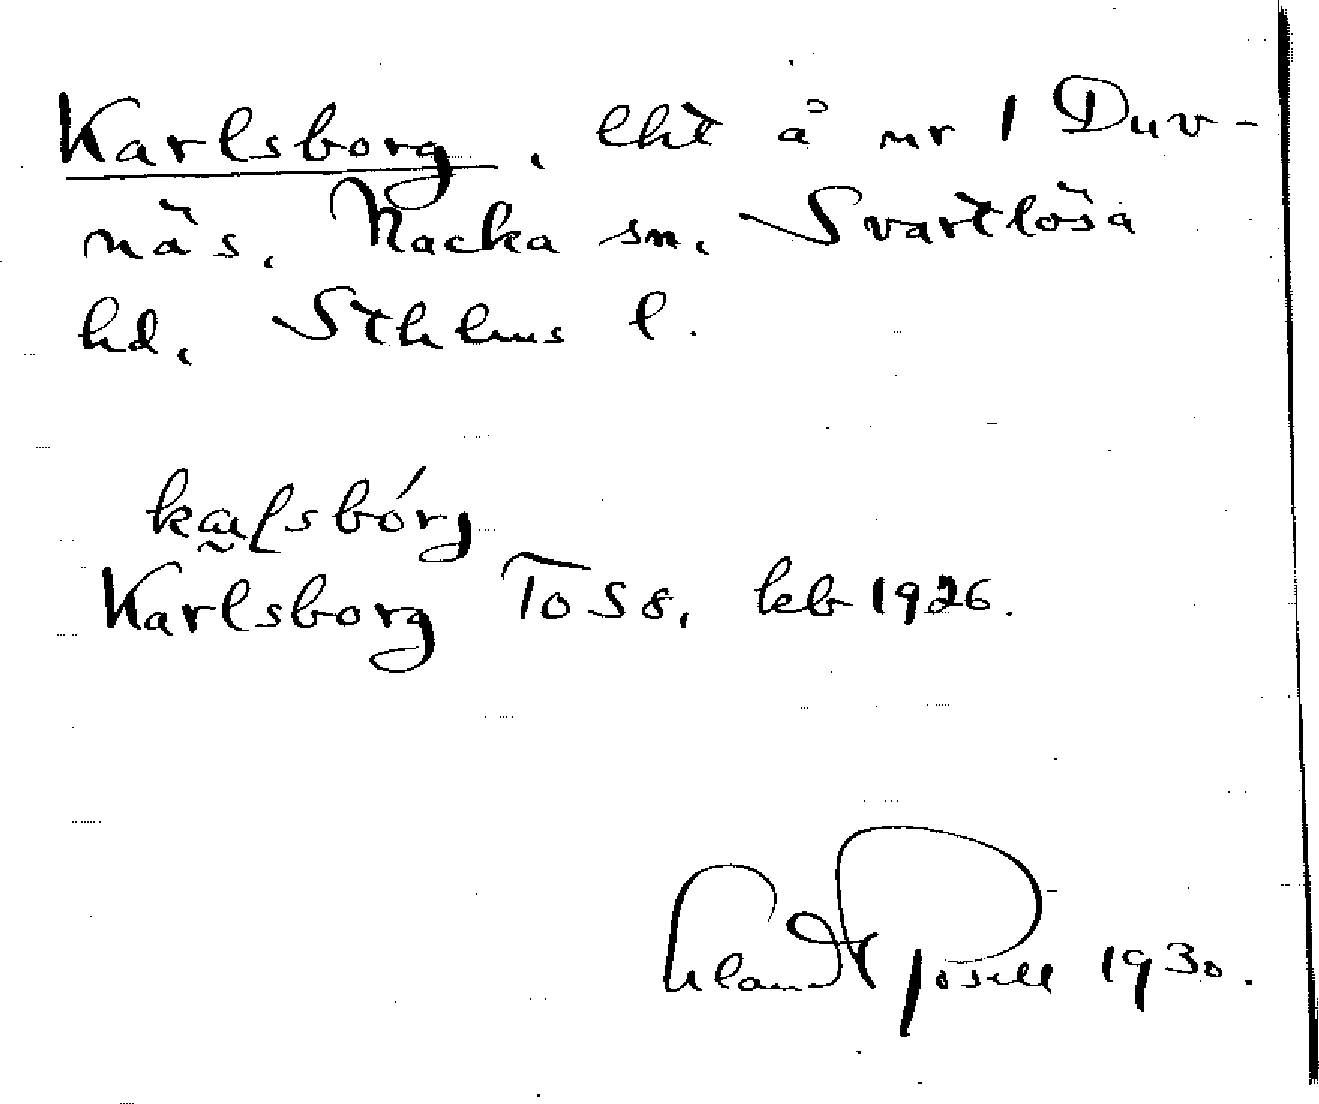 Karlsborg, lht å nr 1 Duv-
näs, Nacka sn, Svartlösa
hd, Sthlms l.
kaɽsbórg
Karlsborg To S8, kb 1926.
1930.